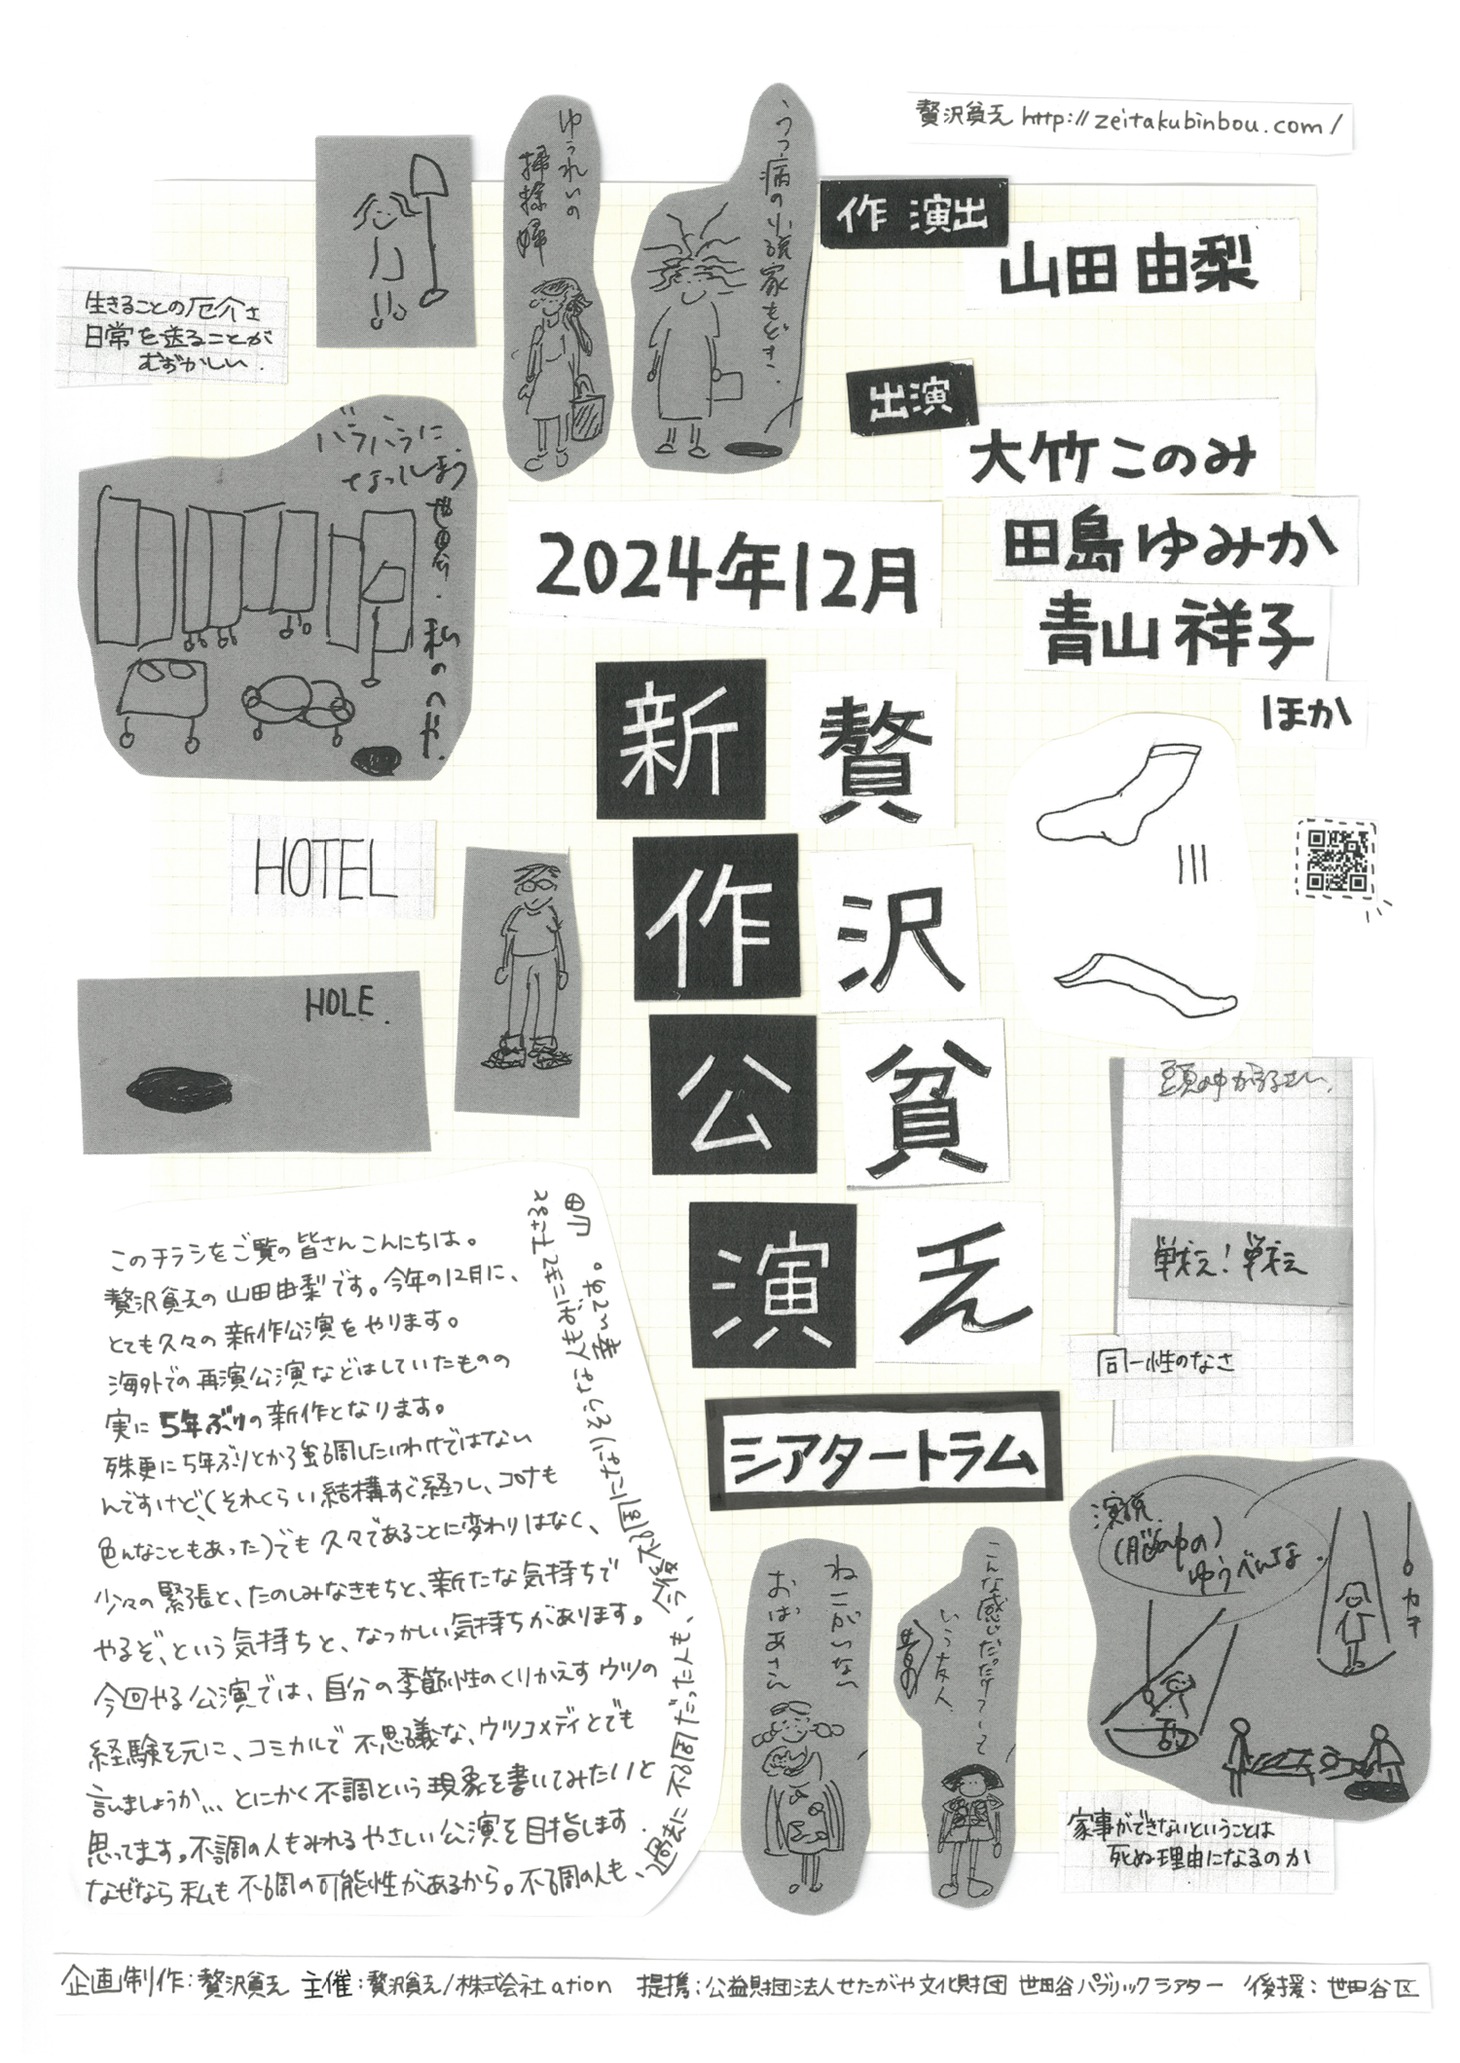 贅沢貧乏 http://zeitakubinbou.com/
作 演出
山田 由梨
出演
大竹 このみ
田島 ゆみか
青山 祥子
ほか
ゆうれいの
掃除婦
うつ病の小説家もどき.
生きることの厄介さ
日常を送ることが
むずかしい.
バラバラに
なってしまう
世界. 私のへや.
2024年12月
贅沢貧乏
新作公演
シアタートラム
HOTEL
HOLE.
頭の中がうるさい.
戦え! 戦え
同一性のなさ
このチラシをご覧の皆さんこんにちは。
贅沢貧乏の山田由梨です。今年の12月に、
とても久々の新作公演をやります。
海外での再演公演などはしていたものの
実に5年ぶりの新作となります。
殊更に5年ぶりとか強調したいわけではない
んですけど、(それくらい結構すぐ経つし、コロナも
色んなこともあった)でも久々であることに変わりはなく、
少々の緊張と、たのしみなきもちと、新たな気持ちで
やるぞ、という気持ちと、なつかしい気持ちがあります。
今回やる公演では、自分の季節性のくりかえすウツの
経験を元に、コミカルで不思議な、ウツコメディとでも
言いましょうか… とにかく不調という現象を書いてみたいと
思ってます。不調の人もみれるやさしい公演を目指します.
なぜなら私も不調の可能性があるから。不調の人も、
過去に不調だった人も、今後不調になりそうな人も
ねこがいない
おばあさん
こんな感じだったっけ?って
いう友人.
演説.
(脳の中の)
ゆうべんな.
カギ
家事ができないということは
死ぬ理由になるのか
企画制作:贅沢貧乏 主催:贅沢貧乏/株式会社ation 提携:公益財団法人せたがや文化財団 世田谷パブリックシアター 後援:世田谷区